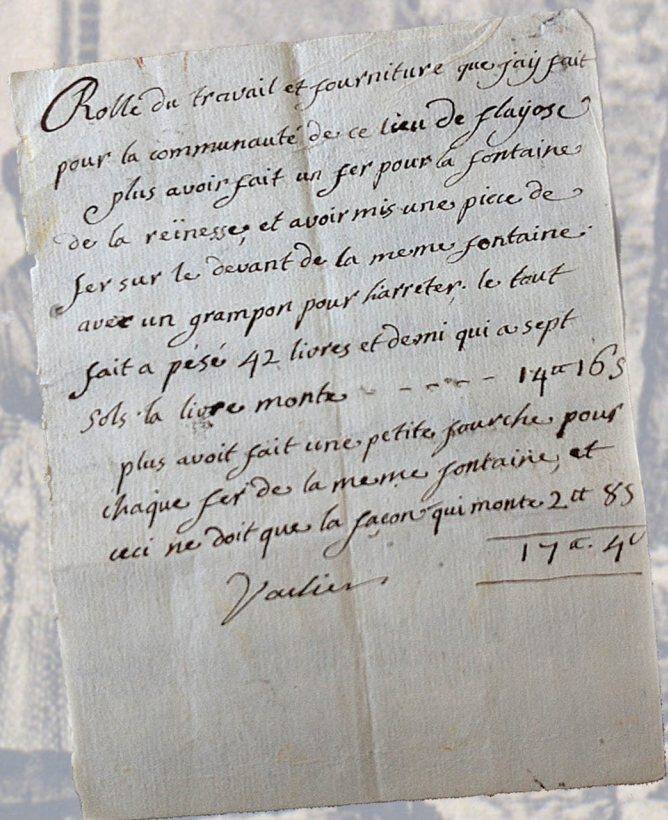 Rolle du travail et fourniture que jay fait
pour la communauté de ce lieu de flayosc
plus avoir fait un fer pour la fontaine
de la reïnesse, et avoir mis une piece de
fer sur le devant de la meme fontaine.
avec un grampon pour l'arreter. le tout
fait a pésé 42 livres et demi qui a sept
sols la livre monte - - - - - 14 tt 16 s
plus avoit fait une petite fourche pour
chaque fer de la meme fontaine, et
ceci ne doit que la façon qui monte 2 tt 8 s
17 tt. 4 s